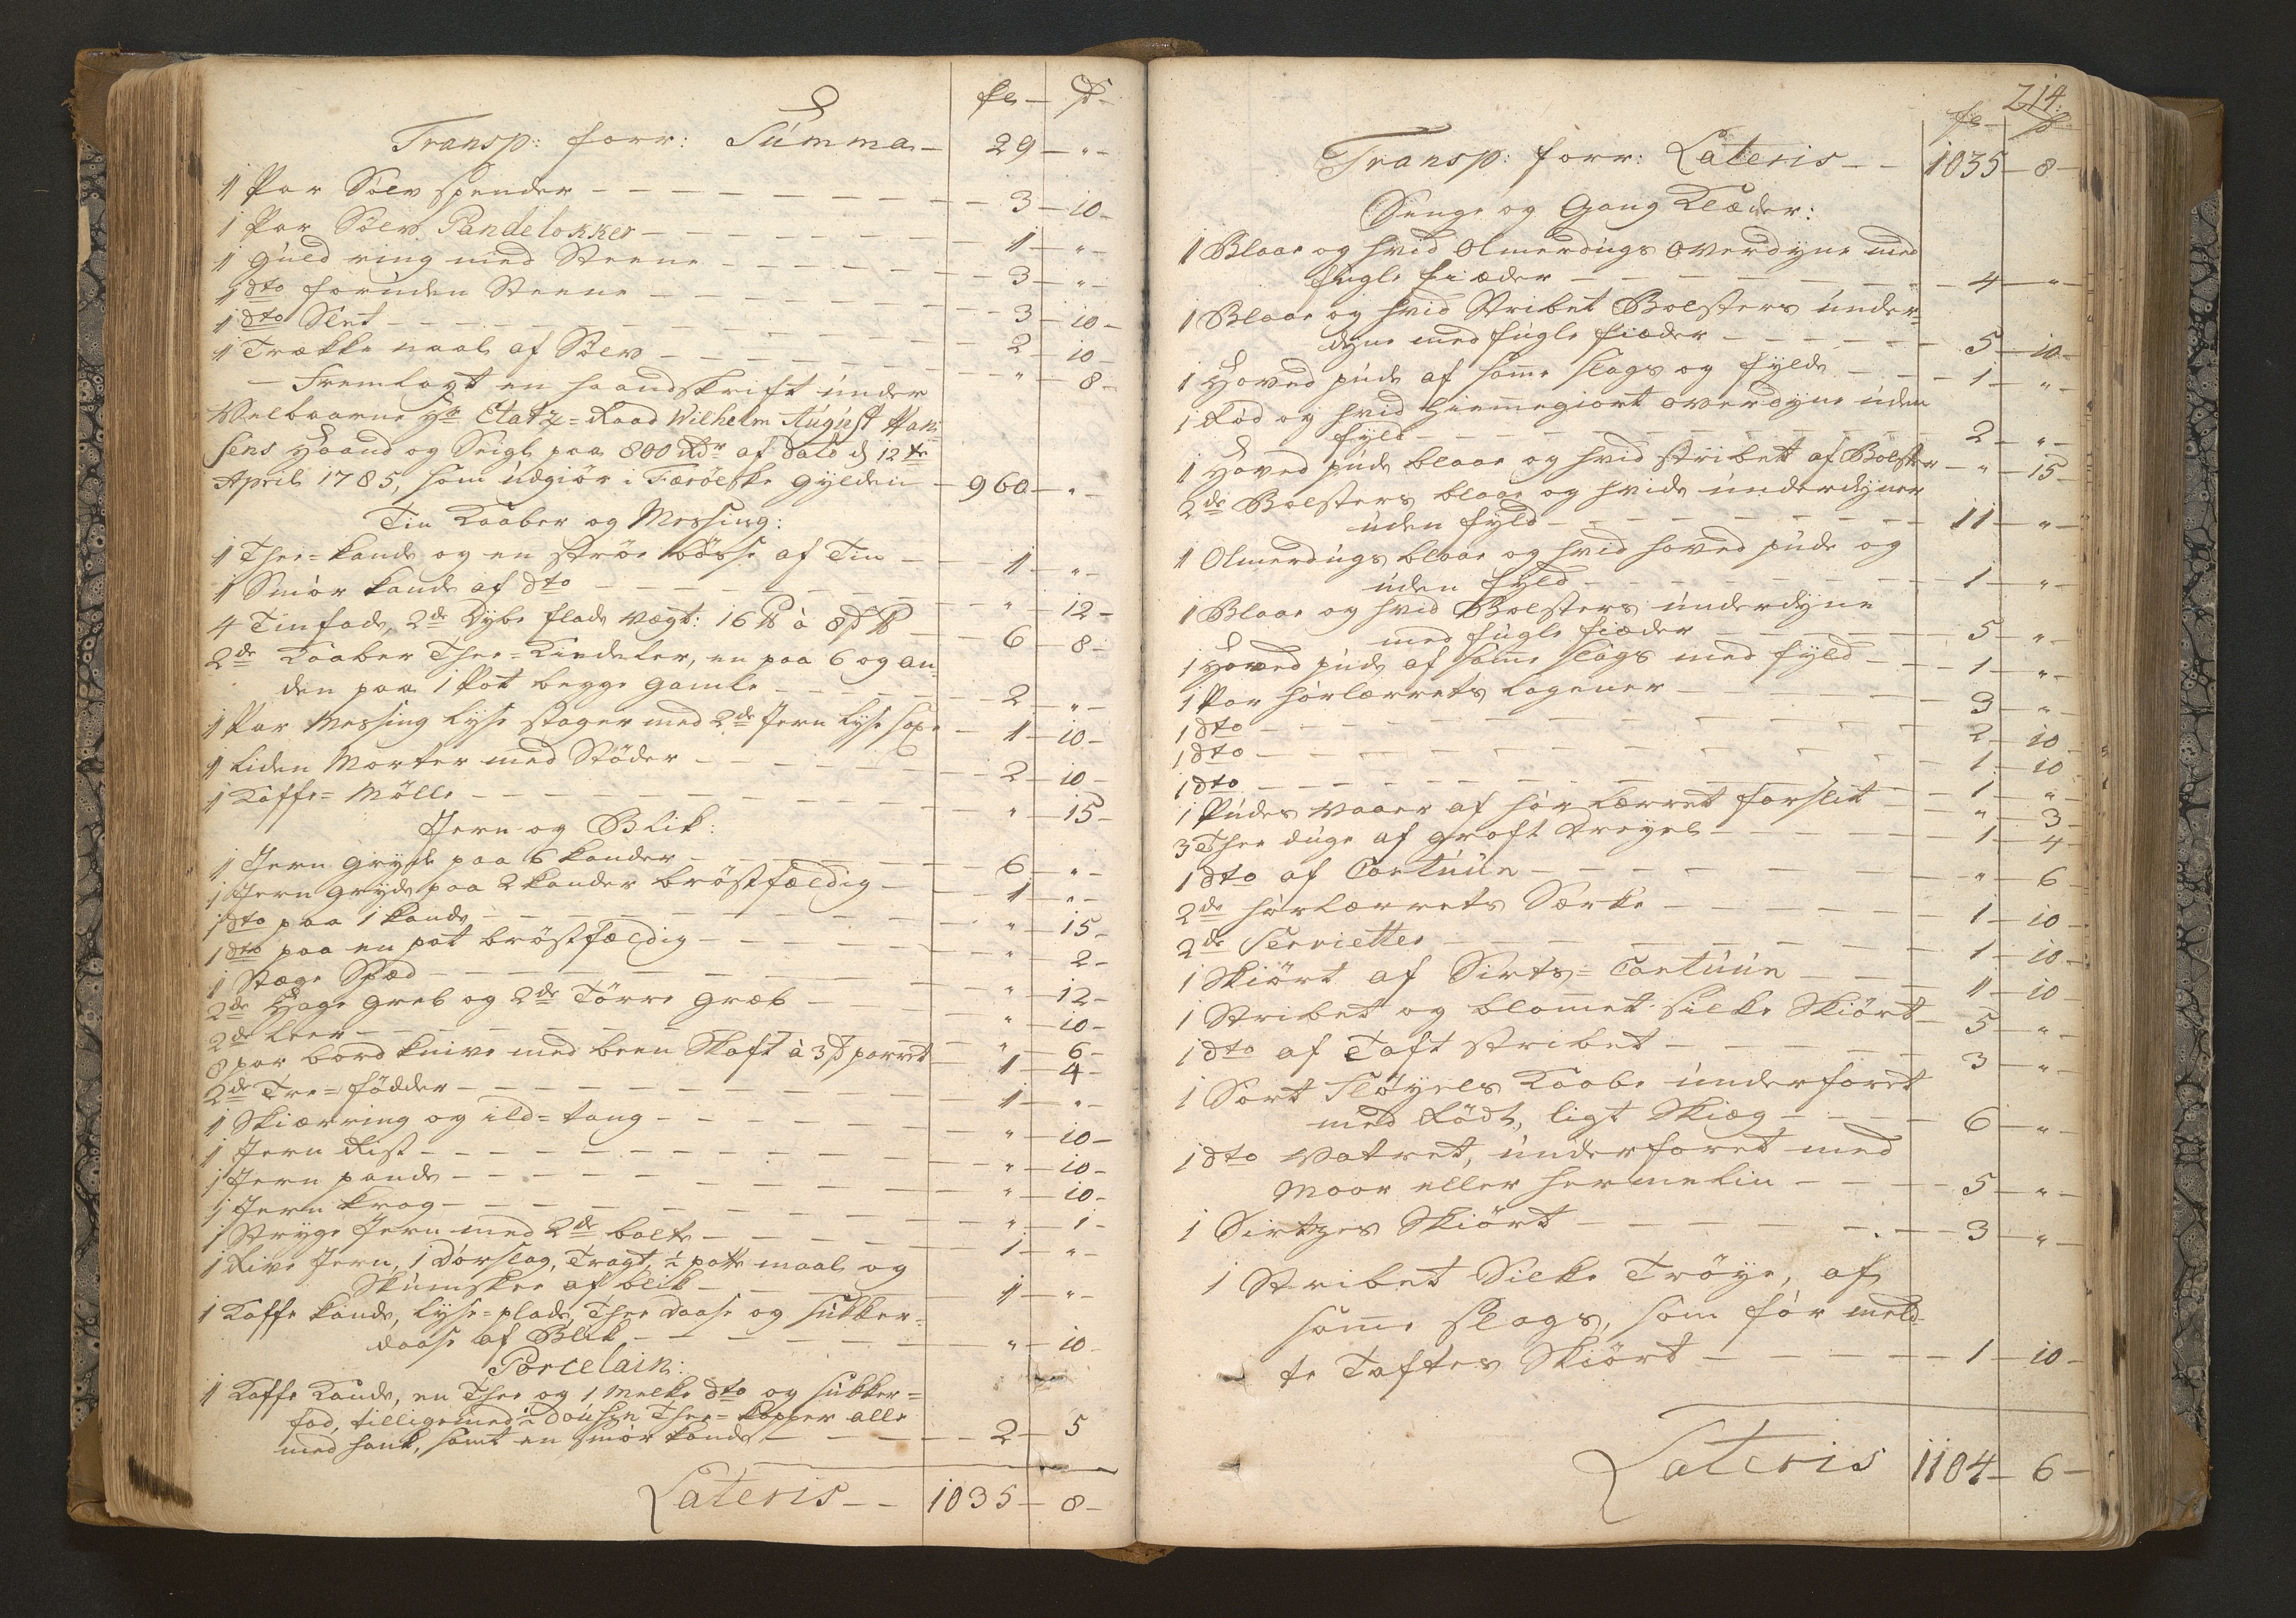 fl — ß
Transp: forr: Summa — 29 — " —
1 Par Sölv spender — 3 — 10 —
1 Par Sölv Pandelokker — 1 — " —
1 Guld ring med Steene — 3 — " —
1 dto foruden Steene — 3 — 10 —
1 dto Slet — 2 — 10 —
1 Trække naal af Sölv — " — 8 —
— Fremlagt en haandskrift under
Velbaarne Hr Etatz=Raad Wilhelm August Han=
sens Haand og Seigl paa 800 Rdr af dato d 12te
April 1785, som udgiör i Færöeske gylden — 960 — " —
Tin Kaaber og Messing:
1 Thee=kande og en ströe bösse af Tin — 1 — " —
1 Smör kande af dto — " — 12 —
4 Tinfade, 2de dybe flade vægt: 16 ℔ à 8 ß ℔ — 6 — 8 —
2de Kaaber Thee=Kiedeler, en paa 6 og an
den paa 1 Pot begge gamle — 2 — " —
1 Par Messing lyse stager med 2de Jern lyse saxe — 1 — 10 —
1 liden Morter med Stöder — 2 — 10 —
1 Kaffe=Mölle — " — 15 —
Jern og Blik:
1 Jern gryde paa 6 kander — 6 — " —
1 Jern gryde paa 2 kander bröstfældig — 1 — " —
1 dto paa 1 kande — " — 15 —
1 dto paa en pot bröstfældig — " — 2 —
1 Stege Spæd — " — 12 —
2de Hage greb og 2de Törre græb — " — 10 —
2de leer — " — 6 —
8 par bord knive med been Skaft à 3 ß parret — 1 — 4 —
2de Tre=födder — 1 — " —
1 Skiærring og ild=tang — " — 10 —
1 Jern Rist — " — 10 —
1 Jern pande — " — 10 —
1 Jern krog — " — 1 —
1 Stryge Jern med 2de bolte — 1 — " —
1 Rive Jern, 1 dörslag, Tragt, ½ potte maal og
Skumskee af blik — 1 — " —
1 Kaffe kande, lyse=plade, Thee daase og sukker=
daase af Blik — " — 10 —
Porcelain:
1 Kaffe Kande, en Thee og 1 Melke dto og sukker=
fad, tilligemed ½ dousin Thee=kopper alle
med hank, samt en smör kande — 2 — 5
Lateris — 1035 — 8 —
214.
fl — ß
Transp: forr: Lateris — 1035 — 8 —
Senge og Gang Klæder:
1 Blaae og hvid Olmerdugs overdyne med
fugle fiæder — 4 — " —
1 Blaae og hvid Stribet Bolsters under=
dyne med fugle fiæder — 5 — 10 —
1 Hoved pude af samme slags og fyld — 1 — " —
1 Röd og hvid hiemmegiort overdyne uden
fyld — 2 — " —
1 Hoved pude blaae og hvid stribet af Bolster — " — 15 —
2de Bolsters blaae og hvide underdyner
uden fyld — 11 — " —
1 Olmerdugs blaae og hvid hoved pude og
uden fyld — 1 — " —
1 Blaae og hvid Bolsters underdyne
med fugle fiæder — 5 — " —
1 Hoved pude af samme slags med fyld — 1 — " —
1 Par hörlærrets lagener — 3 — " —
1 dto — 2 — 10 —
1 dto — 1 — 10
1 dto — 1 — " —
1 Pudes vaaer af hör lærret forslit — " — 3 —
3 Thee duge af groft dreyel — 1 — 4 —
1 dto af Cartuun — " — 6 —
2de hörlærrets Særke — 1 — 10 —
2de Servietter — 1 — 10 —
1 Skiört af Sirts=Cartuun — 1 — 10 —
1 Stribet og blomet silke Skiört — 5 — " —
1 dto af Taft stribet — 3 — " —
1 Sort Flöyels Kaabe underforet
med Rödt, ligt Skiæg — 6 — " —
1 dto vatret, underforet med
Moor eller hermelin — 5 — " —
1 Sirtzes Skiört — 3 — " —
1 Stribet Silke Tröye, af
samme slags, som för meld=
te Taftes Skiört — 1 — 10 —
Lateris 1104 — 6 —